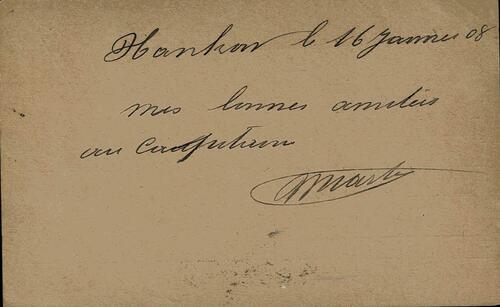 Hankow le 16 Janvier 08
mes bonnes amitiés
au Capitaine